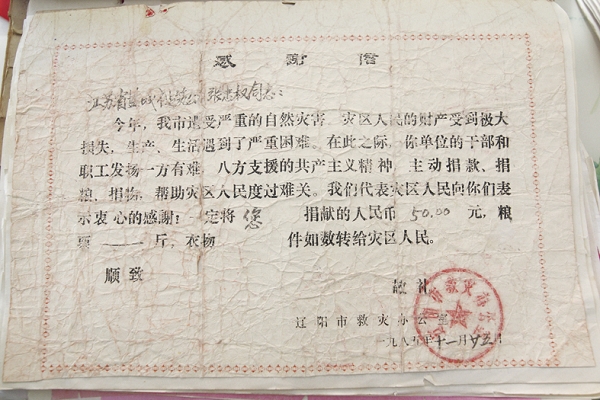 感谢信
江苏省盐城 张忠权同志：
今年，我市遭受严重的自然灾害，灾区人民的财产受到极大
损失，生产、生活遇到了严重困难。在此之际，你单位的干部和
职工发扬一方有难，八方支援的共产主义精神，主动捐款、捐
粮、捐物，帮助灾区人民度过难关。我们代表灾区人民向你们表
示衷心的感谢！一定将 您 捐献的人民币 50.00 元，粮
票 —— 斤，衣物 件如数转给灾区人民。
顺致
敬礼
辽阳市救灾办公室
一九八五年十一月廿五日